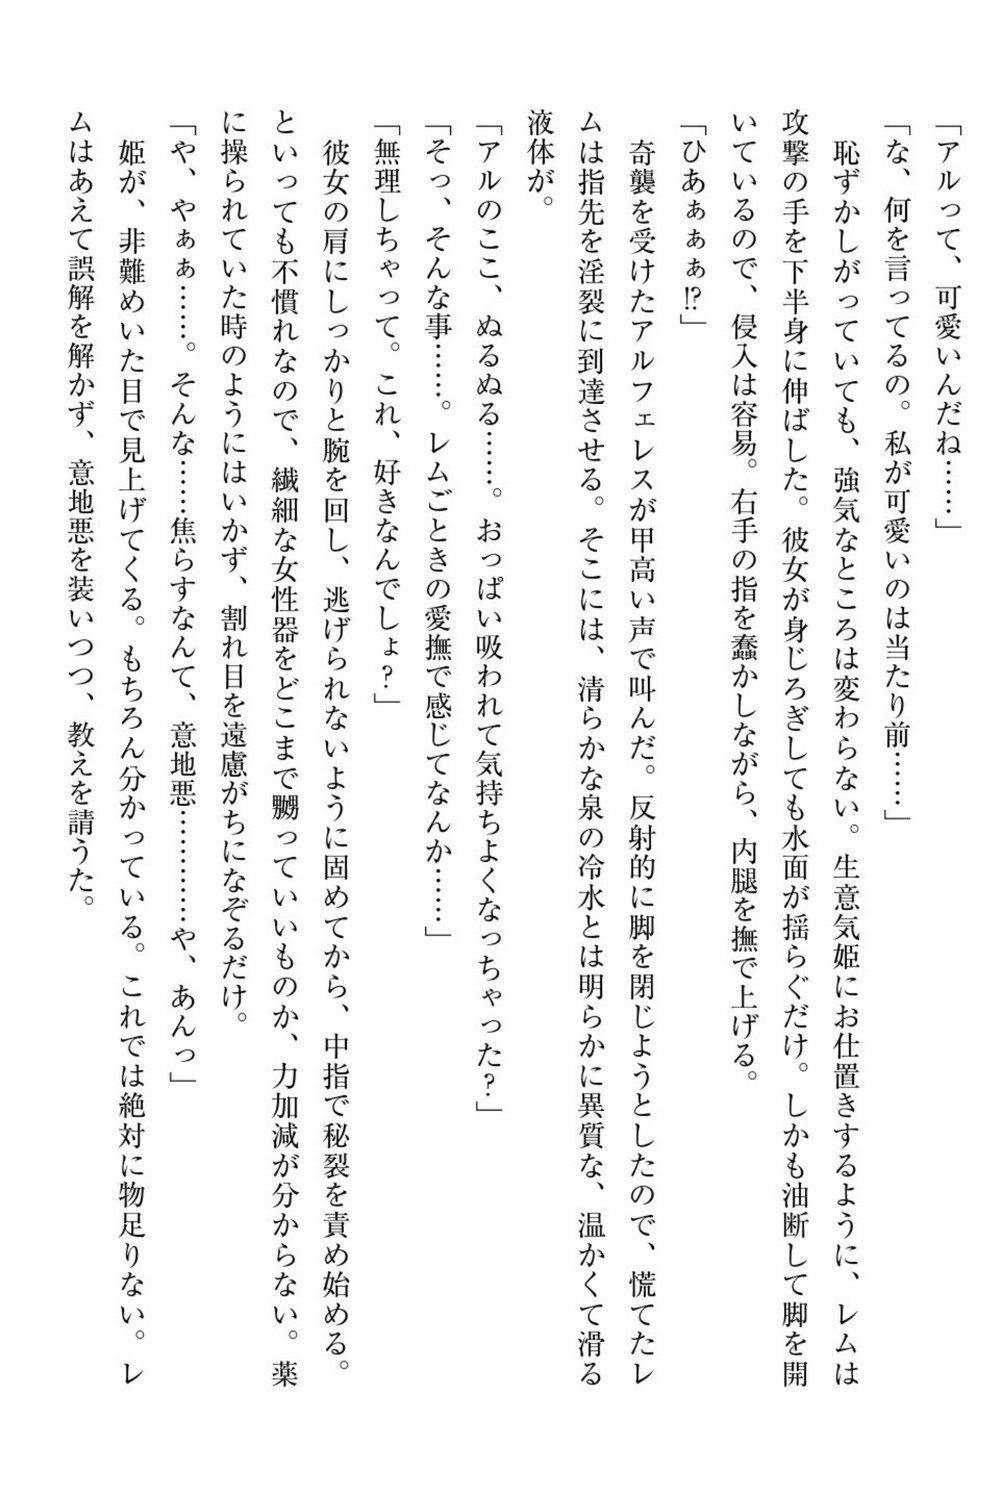 「アルって、可愛いんだね……」
「な、何を言ってるの。私が可愛いのは当たり前……」
　恥ずかしがっていても、強気なところは変わらない。生意気姫にお仕置きするように、レムは
攻撃の手を下半身に伸ばした。彼女が身じろぎしても水面が揺らぐだけ。しかも油断して脚を開
いているので、侵入は容易。右手の指を蠢かしながら、内腿を撫で上げる。
「ひあぁぁぁ!?」
　奇襲を受けたアルフェレスが甲高い声で叫んだ。反射的に脚を閉じようとしたので、慌てたレ
ムは指先を淫裂に到達させる。そこには、清らかな泉の冷水とは明らかに異質な、温かくて滑る
液体が。
「アルのここ、ぬるぬる……。おっぱい吸われて気持ちよくなっちゃった?」
「そっ、そんな事……。レムごときの愛撫で感じてなんか……」
「無理しちゃって。これ、好きなんでしょ?」
　彼女の肩にしっかりと腕を回し、逃げられないように固めてから、中指で秘裂を責め始める。
といっても不慣れなので、繊細な女性器をどこまで嬲っていいものか、力加減が分からない。薬
に操られていた時のようにはいかず、割れ目を遠慮がちになぞるだけ。
「や、やぁぁ……。そんな……焦らすなんて、意地悪…………や、あんっ」
　姫が、非難めいた目で見上げてくる。もちろん分かっている。これでは絶対に物足りない。レ
ムはあえて誤解を解かず、意地悪を装いつつ、教えを請うた。